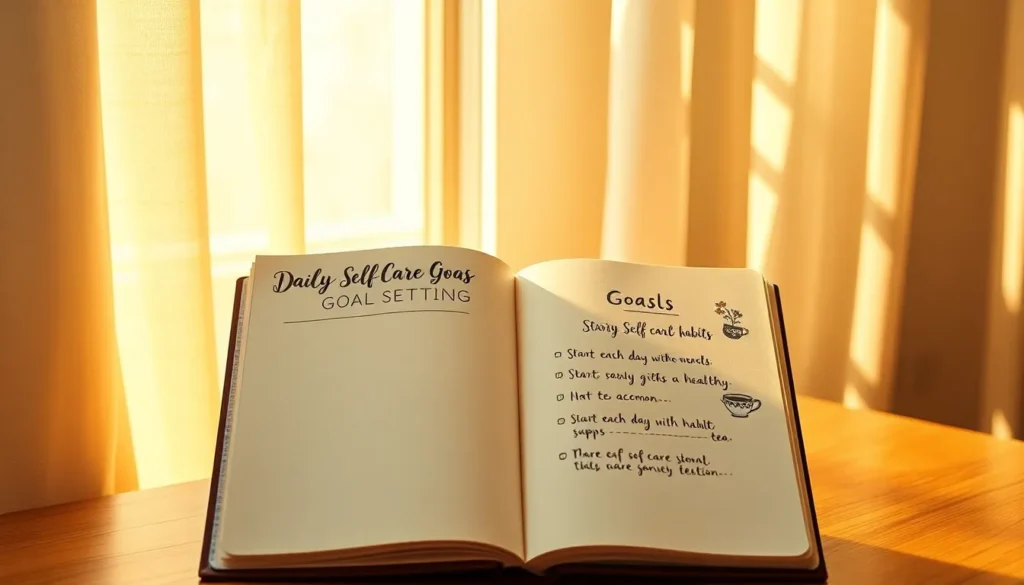 Daily Self Care Goas
GOAL SETTING
Goasls
Stavy Self cant habits
Start each day withe wends.
Start sawly gifts a healthy.
Hot te accmon...
Start each day with hablt
supps ---------------- tea.
Mare eaf sof care stonal
tials ware gansey testion...